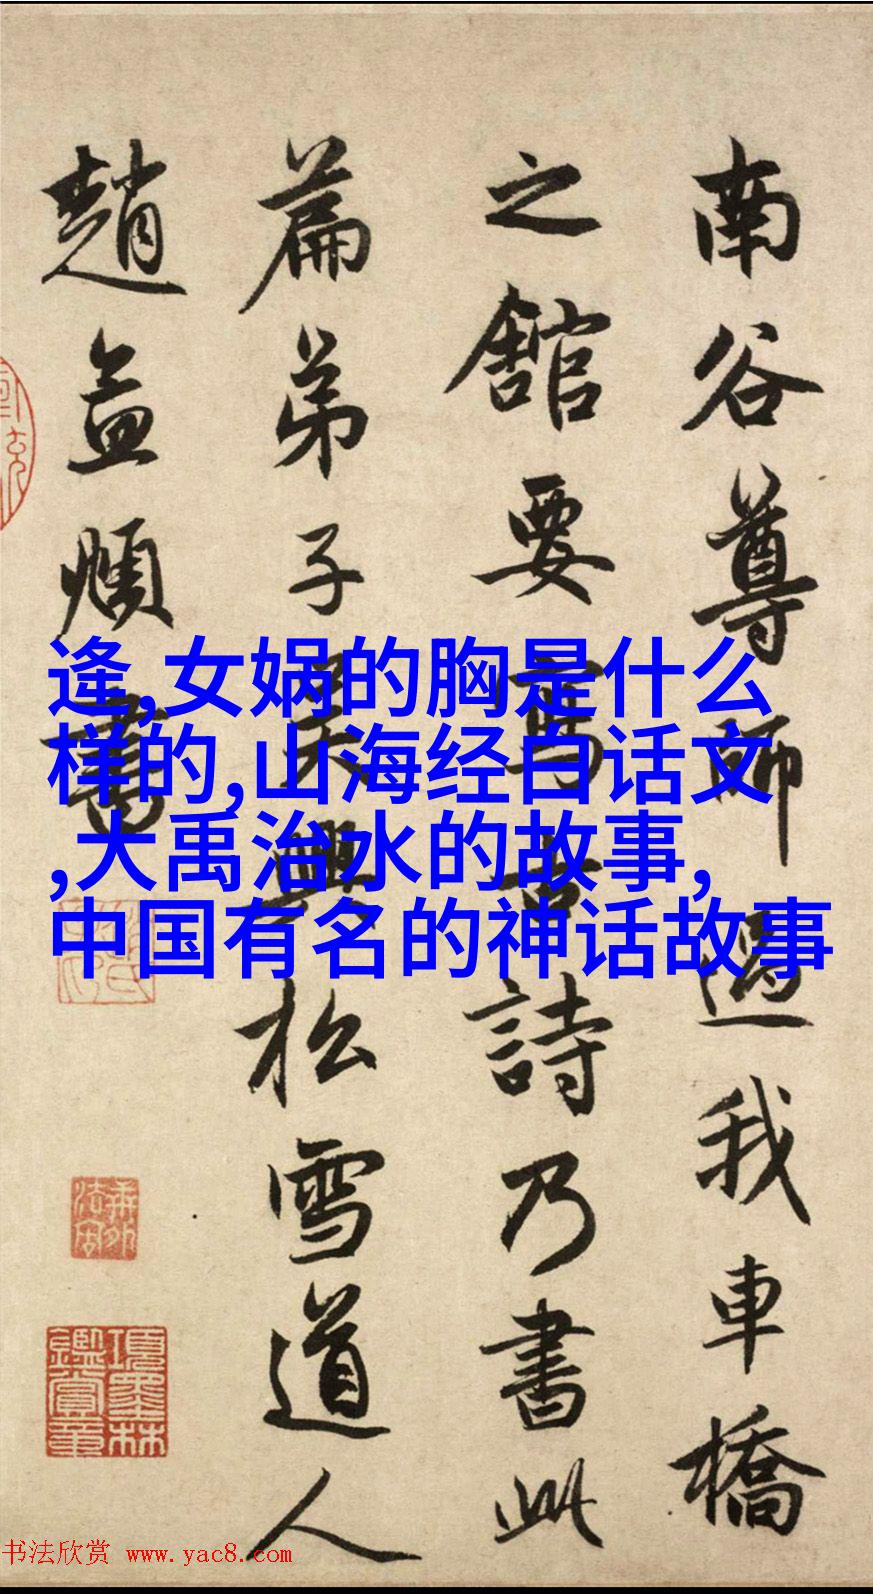 南谷尊師過我車橋
之舘要寫書詩乃書此
篇弟子吴興松雪道人
趙孟頫書
逄,女娲的胸是什么
样的,山海经白话文
,大禹治水的故事,
中国有名的神话故事
項墨林鑑賞章
书法欣赏 www.yac8.com